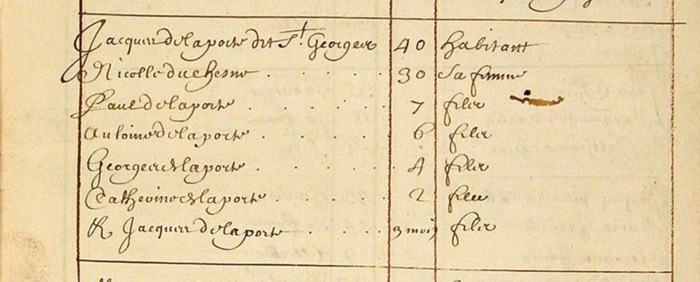 Jacques delaporte dit St Georges 40 habitant
Nicolle duchesne 30 Sa femme
Paul delaporte 7 filz
Antoine delaporte 6 filz
George delaporte 4 filz
Catherine delaporte 2 fille
Jacques delaporte 3 mois filz